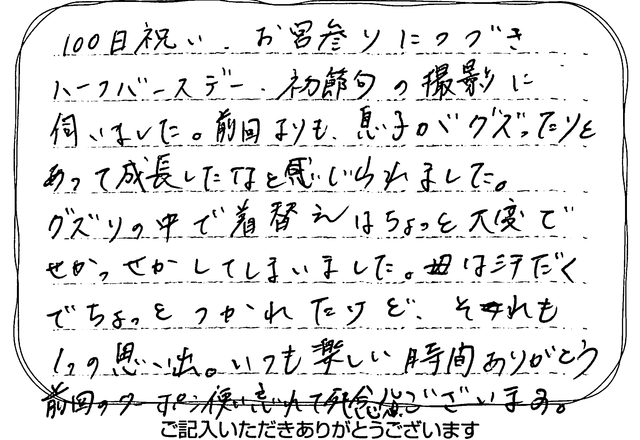 100日祝い、お宮参りにつづき
ハーフバースデー、初節句の撮影に
伺いました。前回よりも、息子がグズったりと
あって成長したなと感じられました。
グズリの中で着替えはちょっと大変で
せかっせかしてしまいました。母は汗だく
でちょっとつかれたけど、それも
1つの思い出。いつも楽しい時間ありがとう
前回のクーポン使い忘れて残念
ございます。
ご記入いただきありがとうございます